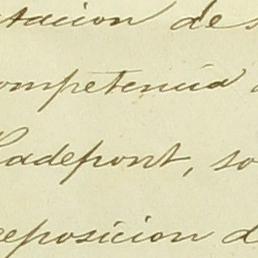 tacion de s
ompetencia
Radepont, so
eposicion d